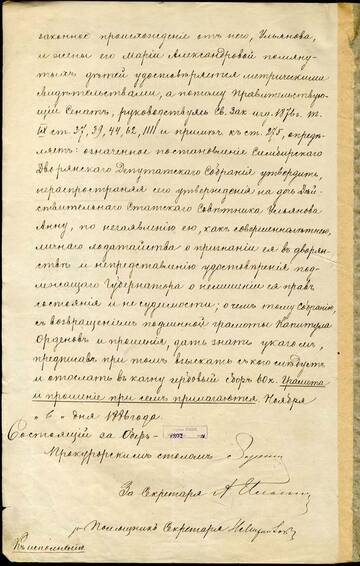 законное происхожденіе отъ него, Ульянова,
и жены его Маріи Александровой помяну-
тыхъ дѣтей удостовѣряется метрическими
свидѣтельствами, а потому Правительствую-
щій Сенатъ, руководствуясь Св. Зак. изд. 1876 г. т.
IX ст. 37, 39, 44, 62, 1111 и примѣч. къ ст. 275, опредѣ-
ляетъ: означенное постановленіе Симбирскаго
Дворянскаго Депутатскаго Собранія утвердить,
не распространяя его утвержденія на дочь Дѣй-
ствительнаго Статскаго Совѣтника Ульянова
Анну, по незаявленію ею, какъ совершеннолѣтнею,
личнаго ходатайства о признаніи ея въ дворян-
ствѣ и непредставленію удостовѣренія под-
лежащаго Губернатора о нелишеніи ея правъ
состоянія и несудимости; о чемъ тому Собранію,
съ возвращеніемъ подлинной грамоты Капитула
Орденовъ и прошенія, дать знать указомъ,
предписавъ при томъ взыскать съ кого слѣдуетъ
и отослать въ казну гербовый сборъ 60 к. Грамота
и прошеніе при семъ прилагаются. Ноября
"6" дня 1886 года.
Состоящій за Оберъ-
Прокурорскимъ столомъ
За Секретаря
Помощникъ Секретаря
Къ исполненію